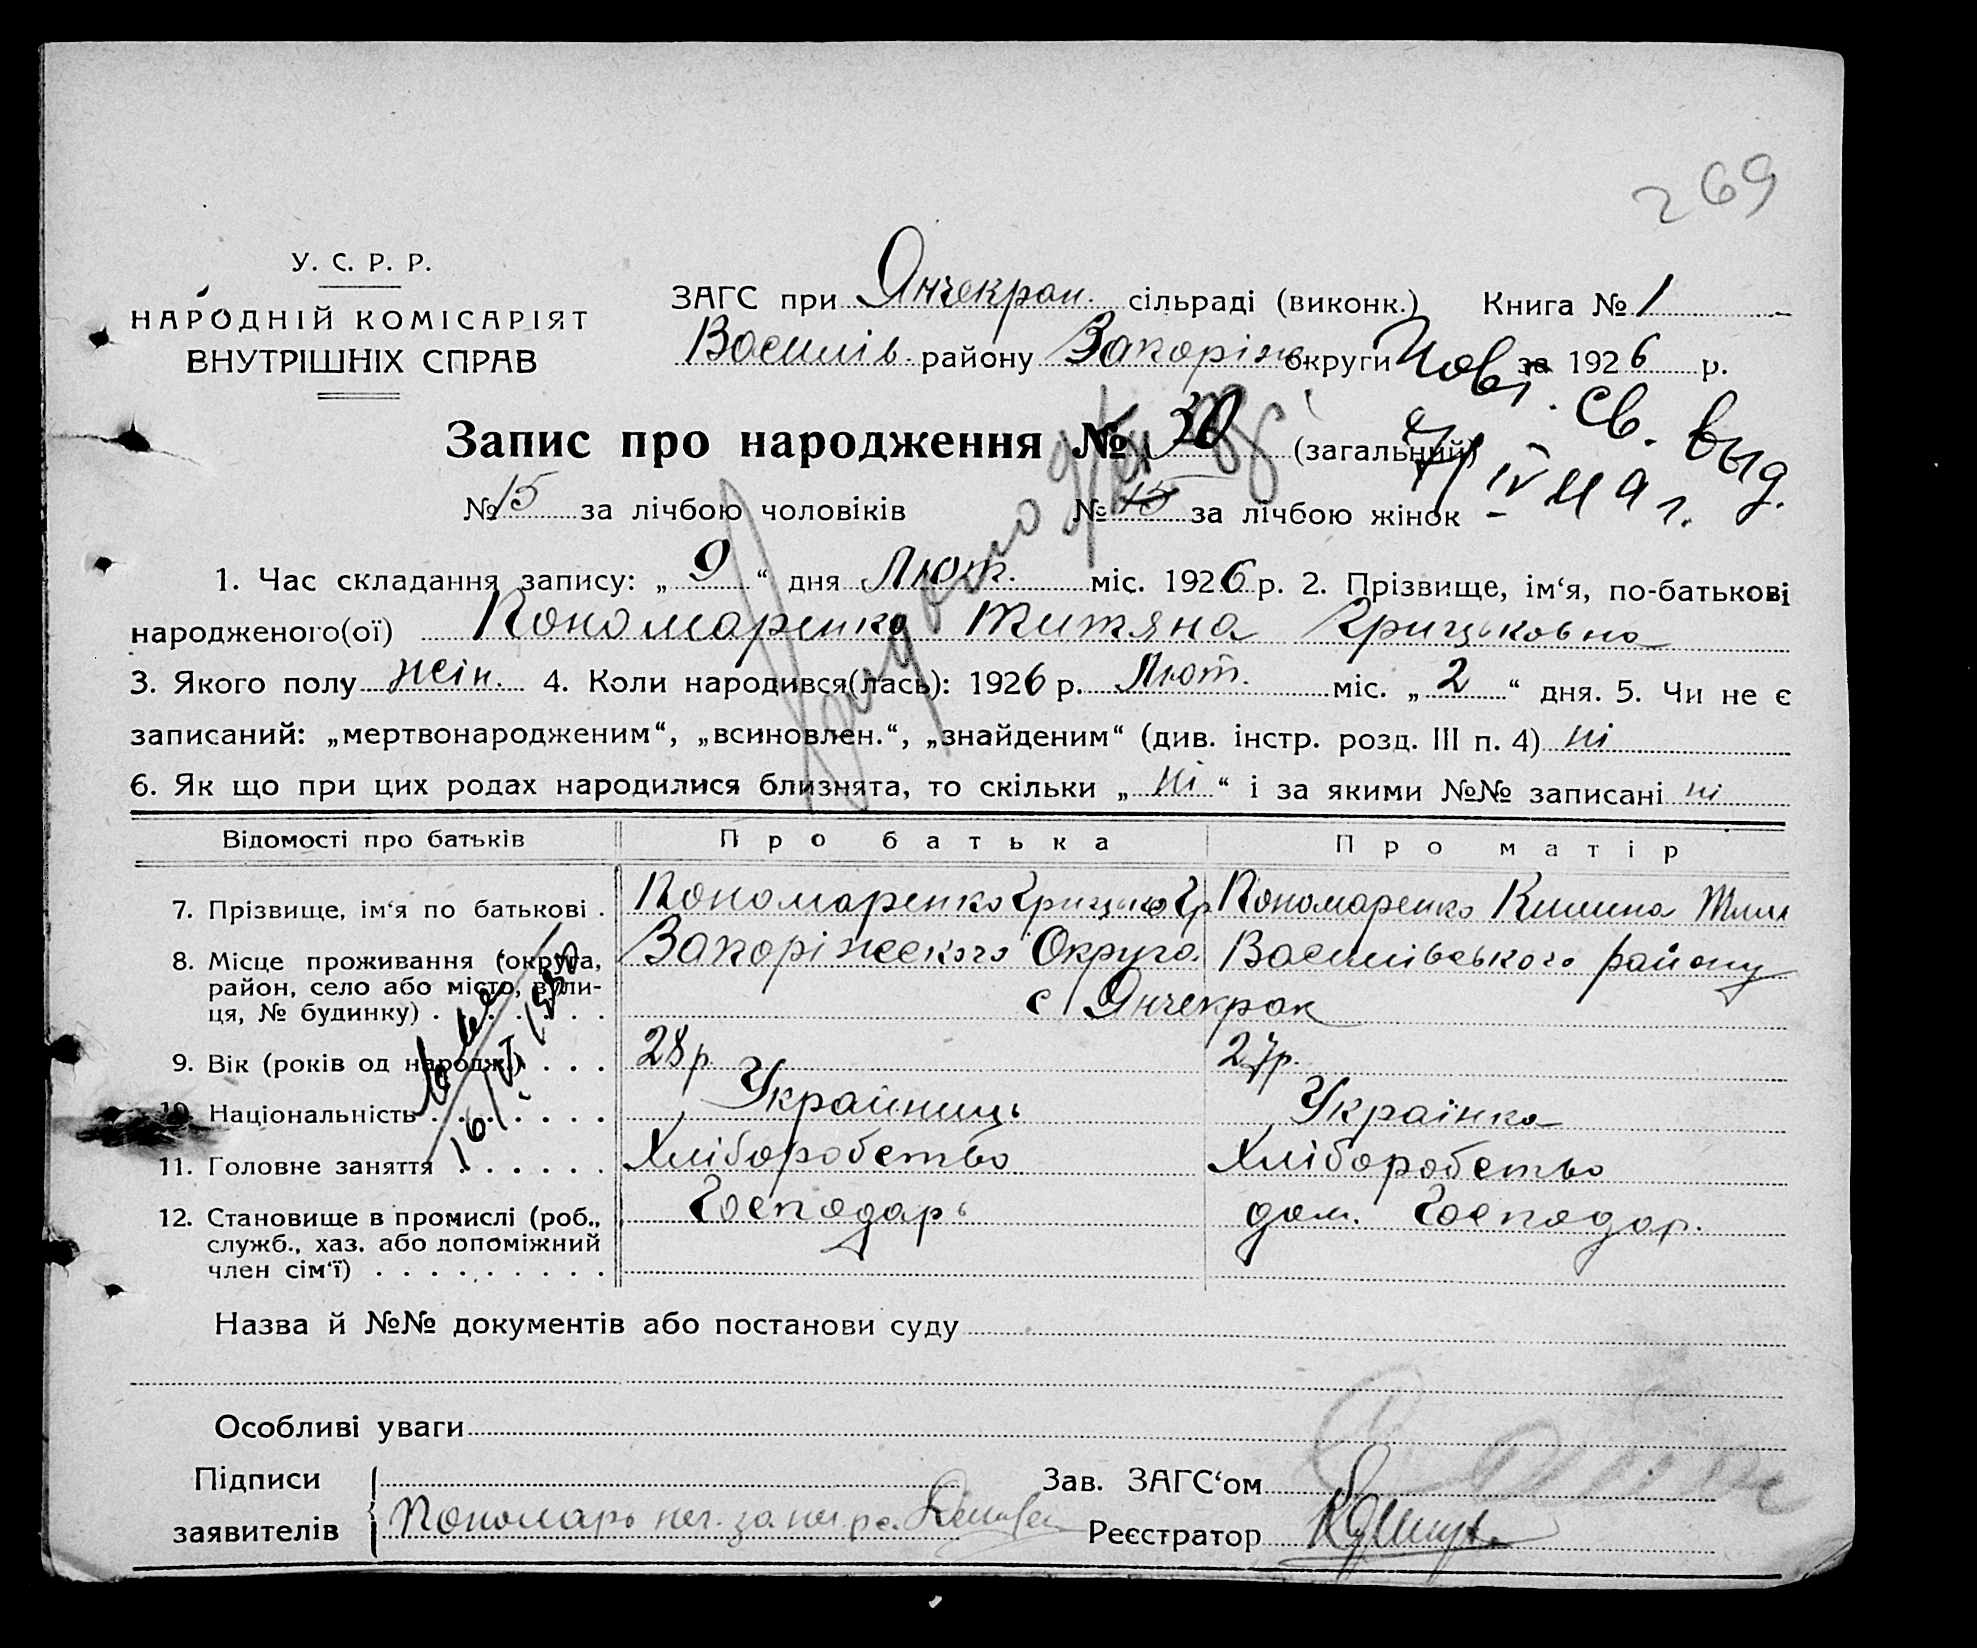 269
У. С. Р. Р.
НАРОДНІЙ КОМІСАРІЯТ
ВНУТРІШНІХ СПРАВ
ЗАГС при Янчекрак. сільраді (виконк.) Книга № 1
Василів. району Запоріж. округи за 1926 р.
Повт. св. выд.
Запис про народження № 30 (загальний)
IV 49 г.
№ 15 за лічбою чоловіків № 15 за лічбою жінок
1. Час складання запису: „ 9 “ дня Лют. міс. 1926 р. 2. Прізвище, ім‘я, по-батькові
народженого(ої) Пономаренко Титяна Грицьковна
3. Якого полу жін. 4. Коли народився(лась): 1926 р. Лют. міс. „ 2 “ дня. 5. Чи не є
записаний: „мертвонародженим“, „всиновлен.“, „знайденим“ (див. інстр. розд. III п. 4) ні
6. Як що при цих родах народилися близнята, то скільки „ ні “ і за якими №№ записані ні
Відомості про батьків Про батька Про матір
7. Прізвище, ім‘я по батькові . Пономаренко Грицько Гр Пономаренко Килина
8. Місце проживання (округа, Запоріжского Округа. Василівського району
район, село або місто, вули-
ця, № будинку) . . . . . . . с Янчекрак
9. Вік (років од народж.) . . . . 28 р. 27 р.
10. Національність . . . . . . . Украйниць Українка
11. Головне заняття . . . . . . Хліборобство Хліборобство
12. Становище в промислі (роб., Господарь дом. Господар.
служб., хаз. або допоміжний
член сім‘ї) . . . . . . . . .
16/VI 1950
Назва й №№ документів або постанови суду
Особливі уваги
Підписи Зав. ЗАГС‘ом
заявителів Пономарь Реєстратор